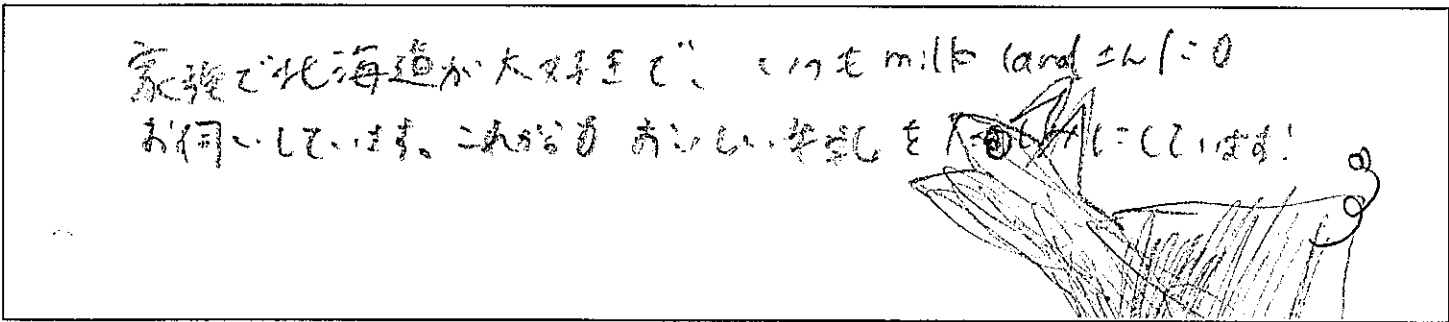 家族で北海道が大好きで、いつも milk land さんにも
お伺いしています。これからもおいしい牛乳を楽しみにしています!